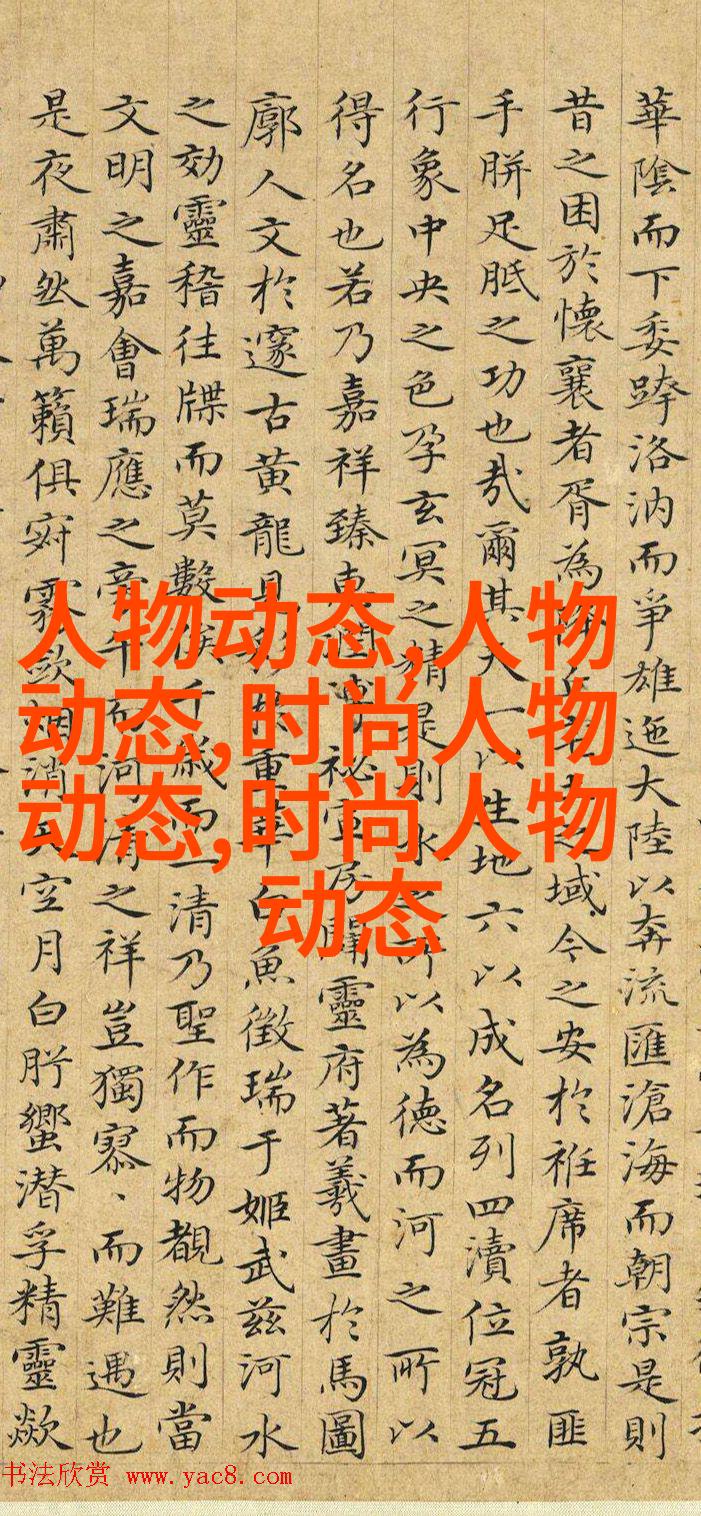 華陰而下委蹛洛汭而爭雄迤大陸以奔流匯滄海而朝宗是則
昔之困於懷襄者胥為 之域今之安於袵席者孰匪
手胼足胝之功也哉爾其天一以生地六以成名列四瀆位冠五
行象中央之色孕玄冥之精是則水之所以為德而河之所以
得名也若乃嘉祥臻 祕 靈府著羲畫於馬圖
廓人文於邃古黃龍見 重華白魚徵瑞于姬武茲河水
之効靈稽往牒而莫數俟千歲而一清乃聖作而物覩然則當
文明之嘉會瑞應之 河清之祥豈獨寡、而難遇也
是夜肅然萬籟俱寂霧歛烟消 空月白肸蠁潜孚精靈歘
人物动态,人物
动态,时尚人物
动态,时尚人物
动态
书法欣赏 www.yac8.com